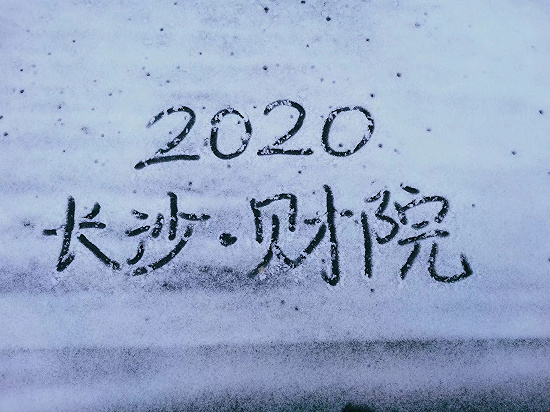 2020
长沙·财院